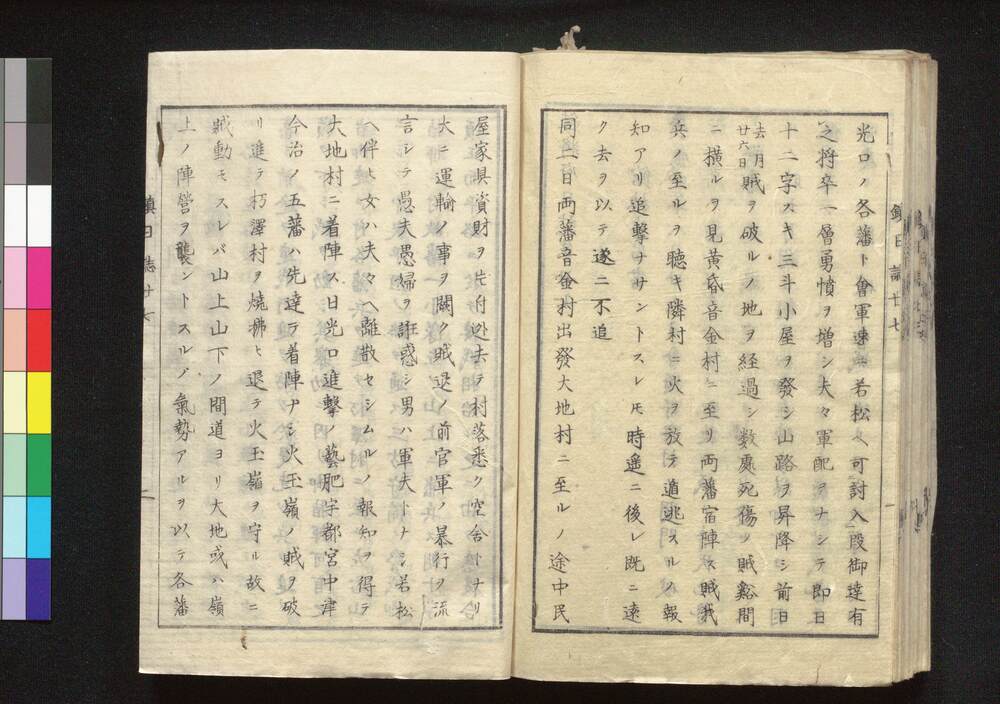 光口ノ各藩ト會軍速ニ若松ヘ可討入段御達有
之将卒一層勇憤ヲ増シ夫々軍配ヲナシテ即日
十二字スキ三斗小屋ヲ發シ山路ヲ昇降シ前日
去月廿六日賊ヲ破ルノ地ヲ経過シ数處死傷ノ賊谿間
ニ横ルヲ見黄昏音金村ニ至リ両藩宿陣ス賊我
兵ノ至ルヲ聴キ隣村ニ火ヲ放テ遁逃スルノ報
知アリ追撃ナサントスレ𪜈時遥ニ後レ既ニ遠
ク去ヲ以テ遂ニ不追
同二日両藩音金村出發大地村ニ至ルノ途中民
屋家具資財ヲ片付迯去テ村落悉ク空舎トナリ
大ニ運輸ノ事ヲ闕ク賊退ノ前官軍ノ暴行ヲ流
言シテ愚夫愚婦ヲ誑惑シ男ハ軍夫トナシ若松
ヘ伴ヒ女ハ夫々ヘ離散セシムルノ報知ヲ得テ
大地村ニ着陣ス日光口進撃ノ藝肥宇都宮中津
今治ノ五藩ハ先達テ着陣ナシ火玉嶺ノ賊ヲ破
リ進テ朽澤村ヲ焼拂ヒ退テ火玉嶺ヲ守ル故ニ
賊動モスレバ山上山下ノ間道ヨリ大地或ハ嶺
上ノ陣營ヲ襲ントスルノ氣勢アルヲ以テ各藩